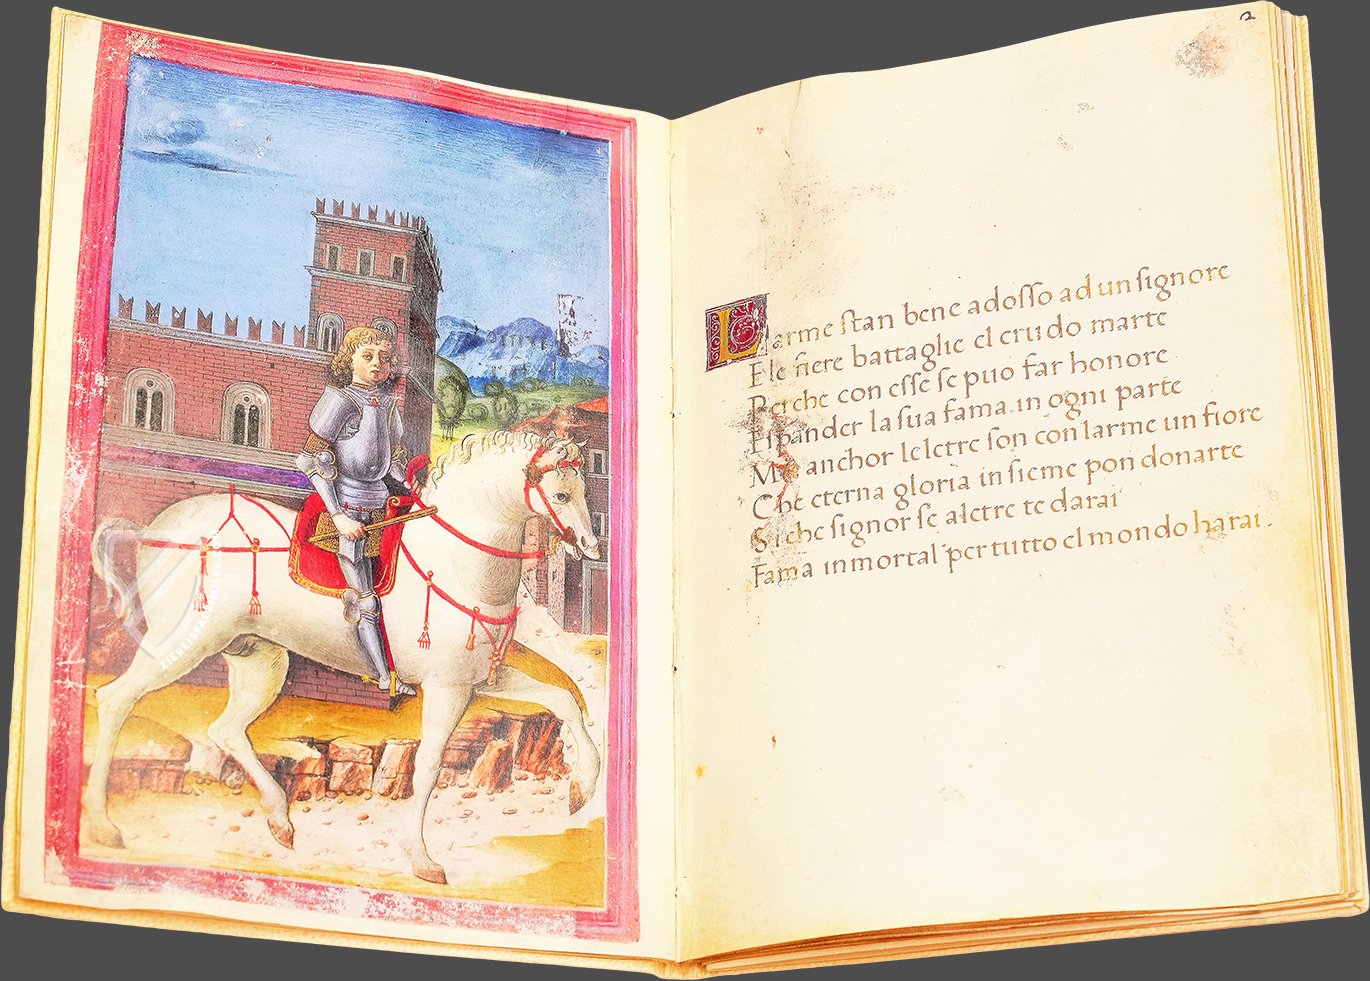 2
Larme ſtan bene adoſſo ad un ſignore
E le fiere battaglie el crudo marte
Perche con eſſe ſe puo far honore
Eſpander la ſua fama in ogni parte
Ma anchor le letre ſon con larme un fiore
Che eterna gloria inſieme pon donarte
Siche ſignor ſe a letre te darai
Fama inmortal per tutto el mondo harai.
ZIEREISFACSIMILES